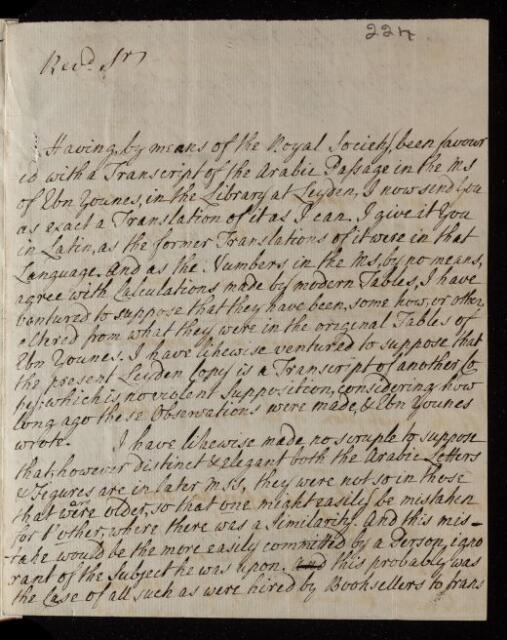 224
Revd. Sr
Having, by means of the Royal Society, been favour
ed with a Transcript of the Arabic Passage in the MS
of Ebn Younes, in the Library at Leyden, I now send You
as exact a Translation of it as I can. I give it You
in Latin, as the former Translations of it were in that
Language. And as the Numbers in the MS, by no means,
agree with Calculations made by modern Tables, I have
ventured to suppose that they have been, some how, or other,
altered from what they were in the original Tables of
Ebn Younes. I have likewise ventured to suppose that
the present Leyden Copy is a Transcript of another Co
py: which is no violent Supposition, considering how
long ago these Observations were made, & Ebn Younes
wrote. I have likewise made no scruple to suppose
that, however distinct & elegant both the Arabic Letters
& Figures are in later MSS, they were not so in those
that were older, so that one might easily be mistaken
for t'other, where there was a Similarity. And this mis-
-take would be the more easily committed by a Person, igno
rant of the Subject he was upon. And this probably was
the Case of all such as were hired by Booksellers to trans